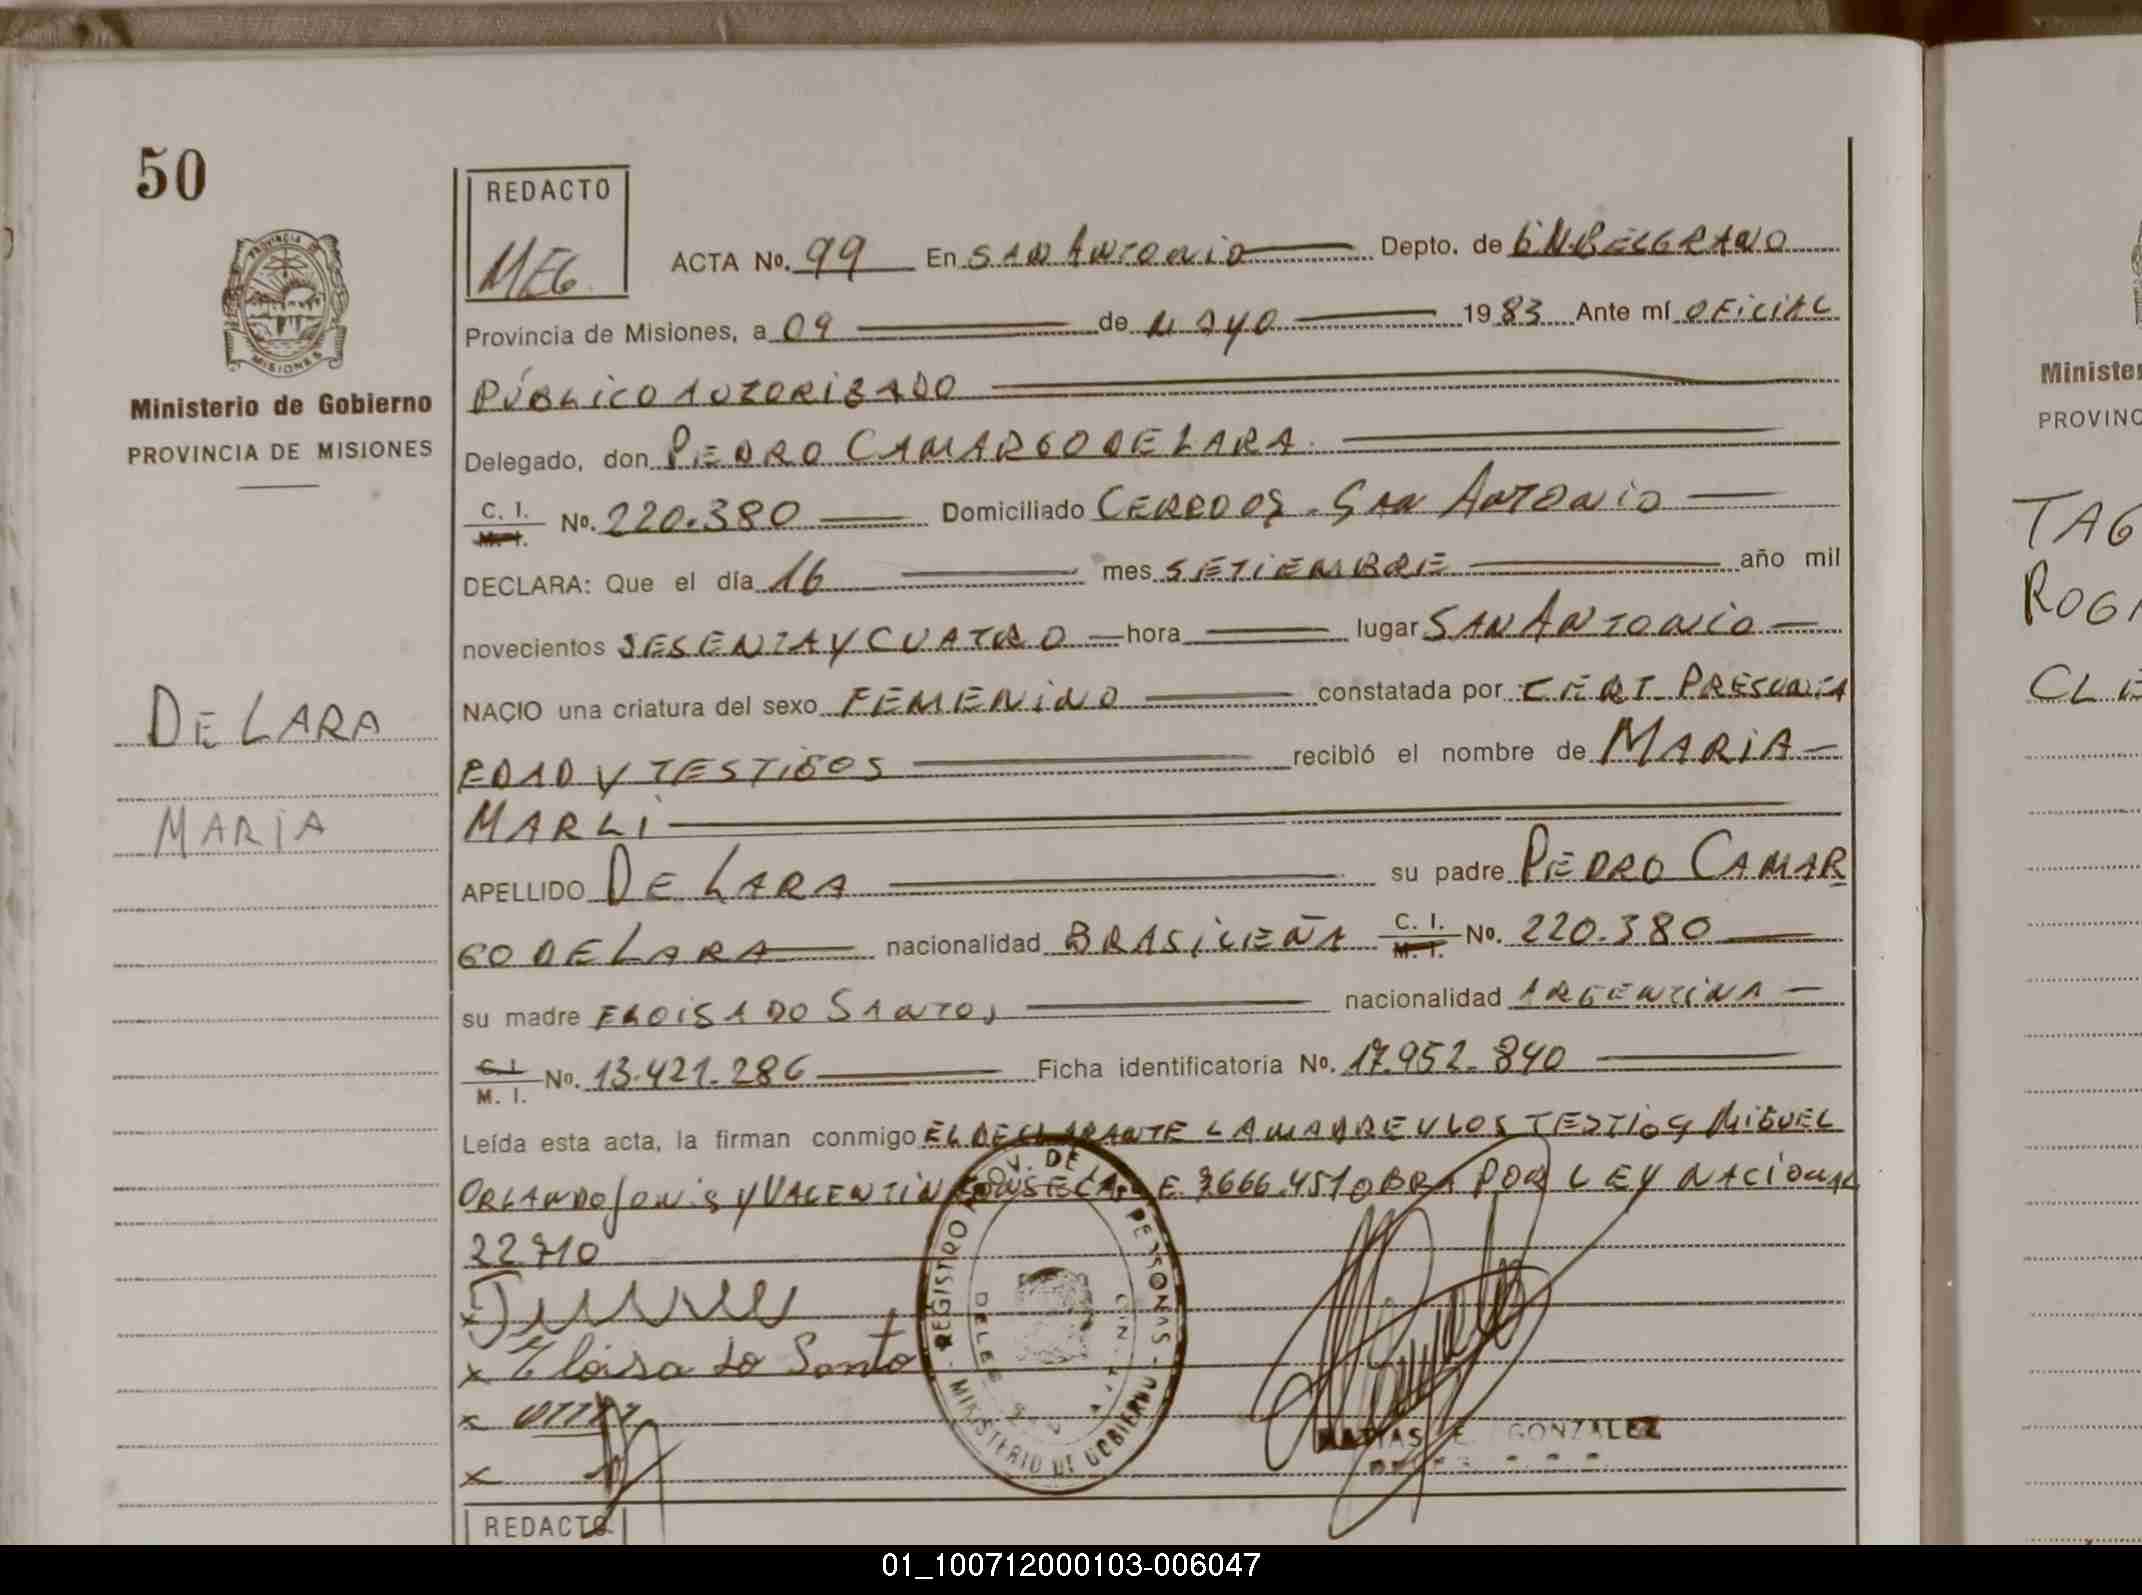 50
REDACTO
MEG.
ACTA No. 99 En SAN ANTONIO Depto. de GN BELGRANO
Provincia de Misiones, a 09 de MAYO 1983 Ante mí OFICIAL
PÚBLICO AUTORIZADO
Delegado, don PEDRO CAMARGO DE LARA
C. I. M. I. No. 220.380 Domiciliado CERRO 07 - SAN ANTONIO
DECLARA: Que el día 16 mes SETIEMBRE año mil
novecientos SESENTA Y CUATRO hora lugar SAN ANTONIO
NACIO una criatura del sexo FEMENINO constatada por CERT PRESUNTA
EDAD Y TESTIGOS recibió el nombre de MARIA
MARLI
APELLIDO DE LARA su padre PEDRO CAMAR
GO DE LARA nacionalidad BRASILEÑA C. I. M. I. No. 220.380
su madre ELOISA DO SANTOS nacionalidad ARGENTINA
C. I. M. I. No. 13.421.286 Ficha identificatoria No. 17.952.840
Leída esta acta, la firman conmigo EL DECLARANTE LA MADRE Y LOS TESTIGOS MIGUEL
ORLANDO Y VALENTIN FONSECA E. 7.666.451 OBRA POR LEY NACIONAL
22.710
x
x Eloisa do Santo
x
x
REGISTRO PROV. DE LAS PERSONAS
MINISTERIO DE GOBIERNO
MATIAS E. GONZALEZ
REDACTO
PROVINCIA DE
MISIONES
Ministerio de Gobierno
PROVINCIA DE MISIONES
DE LARA
MARIA
Minister
PROVINC
TAG
ROG
CL
01_100712000103-006047